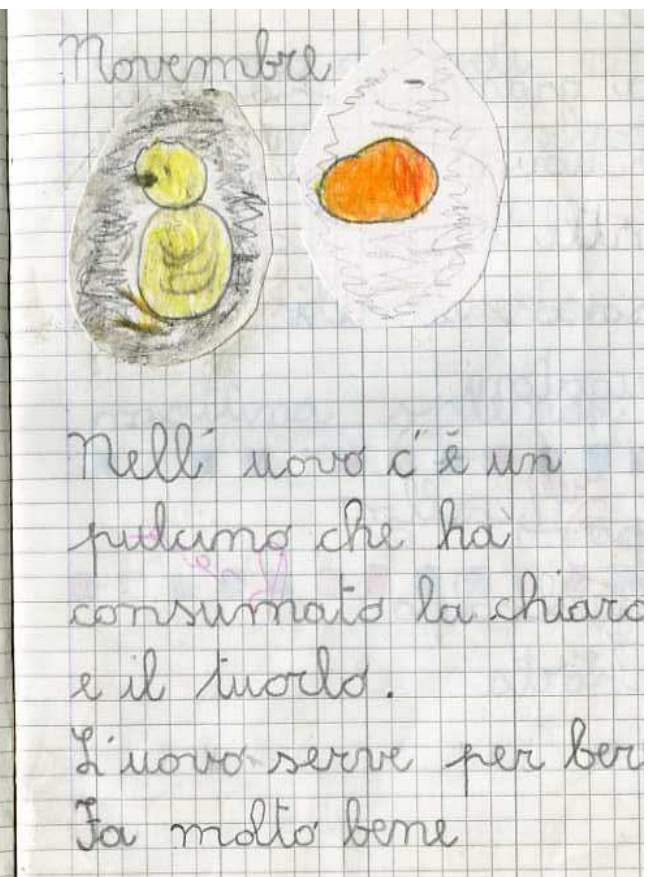 Novembre
Nell' uovo c'è un
pulcino che ha
consumato la chiara
e il tuorlo.
L'uovo serve per ber
Fa molto bene